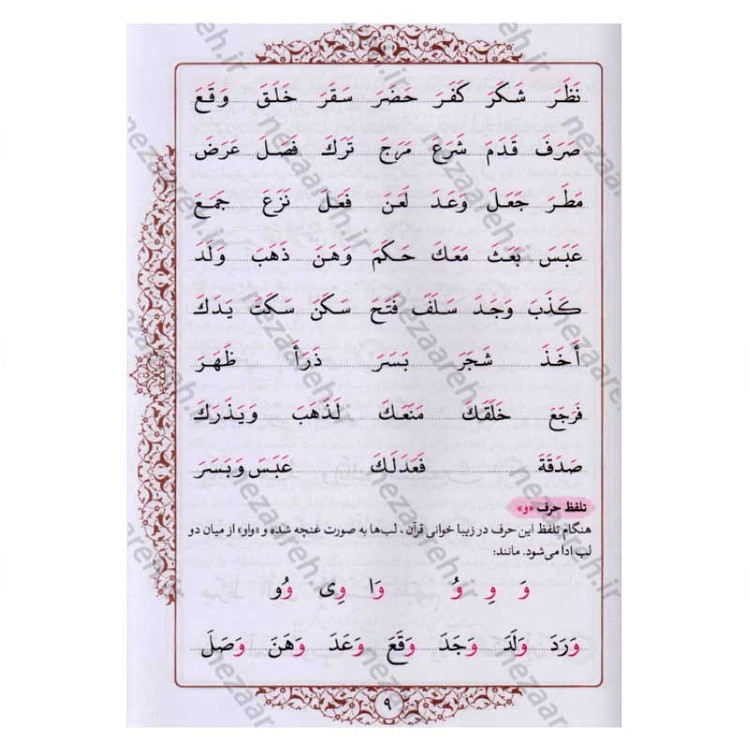 نَظَرَ شَكَرَ كَفَرَ حَضَرَ سَقَرَ خَلَقَ وَقَعَ
صَرَفَ قَدَمَ شَرَعَ مَرَجَ تَرَكَ فَصَلَ عَرَضَ
مَطَرَ جَعَلَ وَعَدَ لَعَنَ فَعَلَ نَزَعَ جَمَعَ
عَبَسَ بَعَثَ مَعَكَ حَكَمَ وَهَنَ ذَهَبَ وَلَدَ
كَذَبَ وَجَدَ سَلَفَ فَتَحَ سَكَنَ سَكَتَ يَدَكَ
أَخَذَ شَجَرَ بَسَرَ ذَرَأَ ظَهَرَ
فَرَجَعَ خَلَقَكَ مَنَعَكَ لَذَهَبَ وَيَذَرَكَ
صَدَقَةَ فَعَدَلَكَ عَبَسَ وَبَسَرَ
تلفظ حرف «و»
هنگام تلفظ این حرف در زیبا خوانی قرآن ، لب‌ها به صورت غنچه شده و «واو» از میان دو
لب ادا می‌شود. مانند:
وَ وِ وُ وَا وِی وُو
وَرَدَ وَلَدَ وَجَدَ وَقَعَ وَعَدَ وَهَنَ وَصَلَ
۹
nezaareh.ir